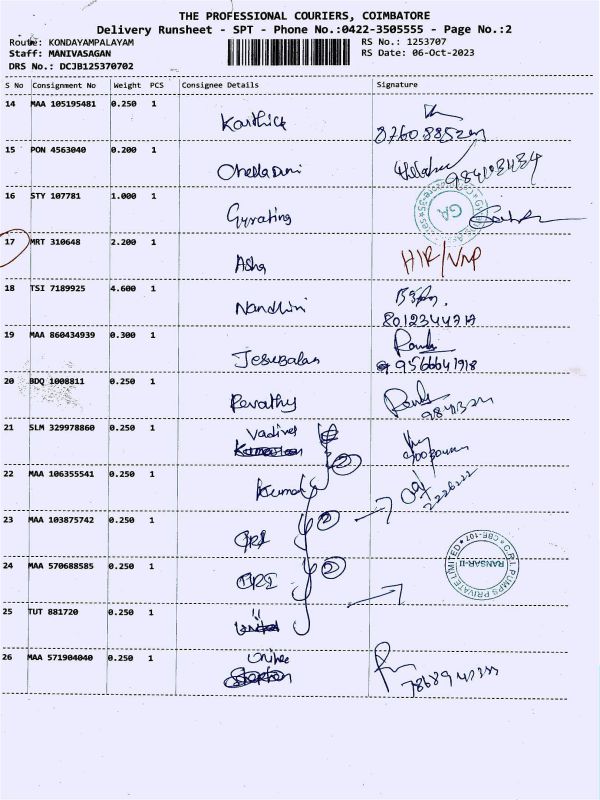 THE PROFESSIONAL COURIERS, COIMBATORE
Delivery Runsheet - SPT - Phone No.:0422-3505555 - Page No.:2
Route: KONDAYAMPALAYAM RS No.: 1253707
Staff: MANIVASAGAN RS Date: 06-Oct-2023
DRS No.: DCJB125370702
S No Consignment No Weight PCS Consignee Details Signature
14 MAA 105195481 0.250 1 Karthick
15 PON 4563040 0.200 1 Chelladurai
16 STY 107781 1.000 1 Gyrating
GA
17 MRT 310648 2.200 1 Asha
18 TSI 7189925 4.600 1 Nandhini
8012344719
19 MAA 860434939 0.300 1 Jesubalan
9566641918
20 BDQ 1008811 0.250 1 Revathy
21 SLM 329978860 0.250 1 Vadivel
22 MAA 106355541 0.250 1 Kumar
2
23 MAA 103875742 0.250 1 CRI
2
24 MAA 570688585 0.250 1 CRI
2
C.R.I. PUMPS PRIVATE LIMITED
RANSAR-II
CBE-107
25 TUT 881720 0.250 1
26 MAA 571904040 0.250 1